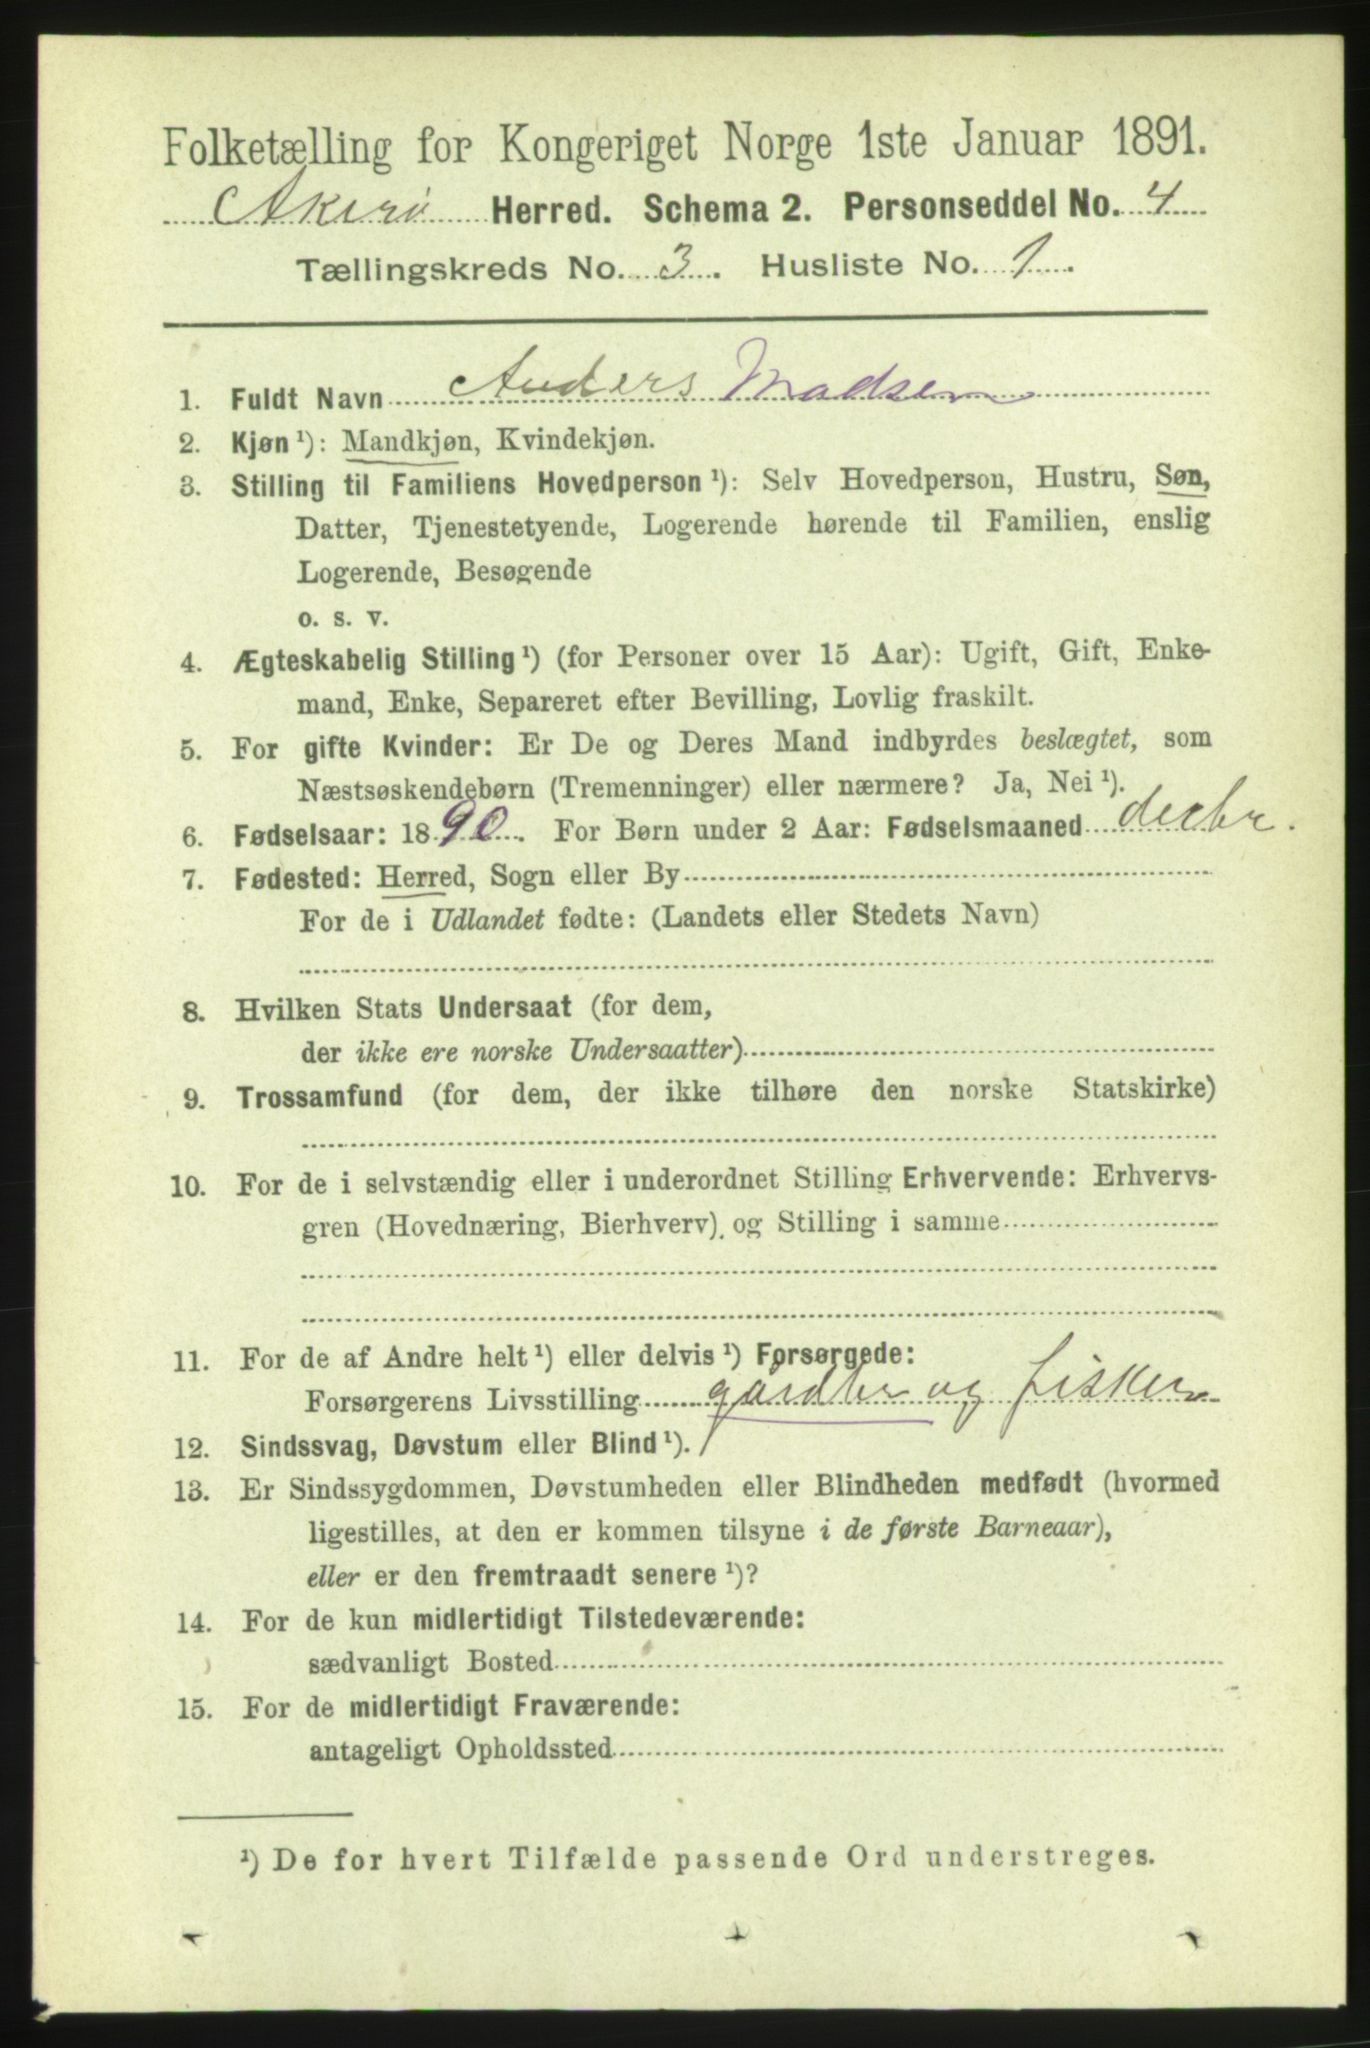 Folketælling for Kongeriget Norge 1ste Januar 1891.
Akerø Herred. Schema 2. Personseddel No. 4
Tællingskreds No. 3. Husliste No. 1.
1. Fuldt Navn Anders Madsen
2. Kjøn ¹): Mandkjøn, Kvindekjøn.
3. Stilling til Familiens Hovedperson ¹): Selv Hovedperson, Hustru, Søn,
Datter, Tjenestetyende, Logerende hørende til Familien, enslig
Logerende, Besøgende
o. s. v.
4. Ægteskabelig Stilling ¹) (for Personer over 15 Aar): Ugift, Gift, Enke-
mand, Enke, Separeret efter Bevilling, Lovlig fraskilt.
5. For gifte Kvinder: Er De og Deres Mand indbyrdes beslægtet, som
Næstsøskendebørn (Tremenninger) eller nærmere? Ja, Nei ¹).
6. Fødselsaar: 1890. For Børn under 2 Aar: Fødselsmaaned decbr.
7. Fødested: Herred, Sogn eller By
For de i Udlandet fødte: (Landets eller Stedets Navn)
8. Hvilken Stats Undersaat (for dem,
der ikke ere norske Undersaatter)
9. Trossamfund (for dem, der ikke tilhøre den norske Statskirke)
10. For de i selvstændig eller i underordnet Stilling Erhvervende: Erhvervs-
gren (Hovednæring, Bierhverv) og Stilling i samme
11. For de af Andre helt ¹) eller delvis ¹) Forsørgede:
Forsørgerens Livsstilling gårdbr og fisker
12. Sindssvag, Døvstum eller Blind ¹).
13. Er Sindssygdommen, Døvstumheden eller Blindheden medfødt (hvormed
ligestilles, at den er kommen tilsyne i de første Barneaar),
eller er den fremtraadt senere ¹)?
14. For de kun midlertidigt Tilstedeværende:
sædvanligt Bosted
15. For de midlertidigt Fraværende:
antageligt Opholdssted
¹) De for hvert Tilfælde passende Ord understreges.